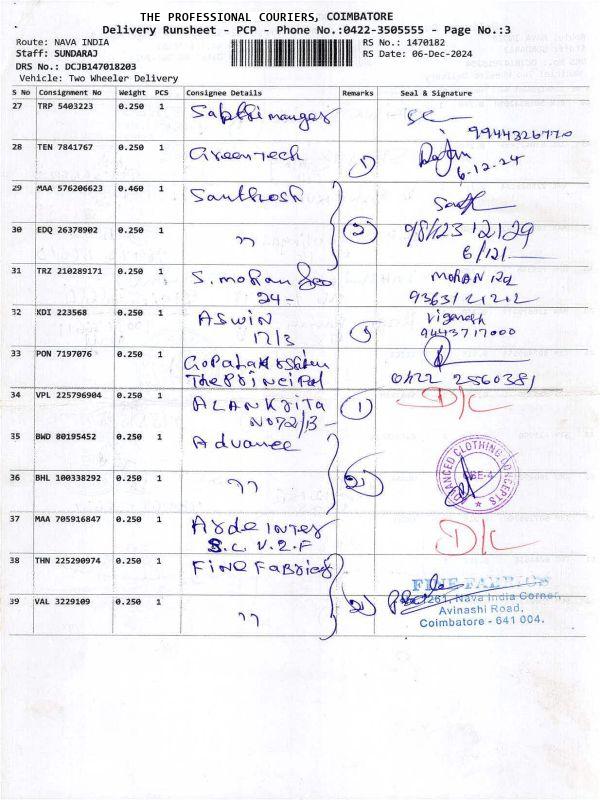 THE PROFESSIONAL COURIERS, COIMBATORE
Delivery Runsheet - PCP - Phone No.:0422-3505555 - Page No.:3
Route: NAVA INDIA
Staff: SUNDARAJ
DRS No.: DCJB147018203
Vehicle: Two Wheeler Delivery
RS No.: 1470182
RS Date: 06-Dec-2024
S No Consignment No Weight PCS Consignee Details Remarks Seal & Signature
27 TRP 5403223 0.250 1
9944326770
28 TEN 7841767 0.250 1 Greentech 1
6-12-24
29 MAA 576206623 0.460 1 Santhosh
30 EDQ 26378902 0.250 1 " 2
6/12/
31 TRZ 210289171 0.250 1 S. mohan
24-
MOHAN
32 KDI 223568 0.250 1 ASWIN
17/3
Vignesh
9443717000
33 PON 7197076 0.250 1
The Principal
0422 2560381
34 VPL 225796904 0.250 1 ALANKRITA 1 D/C
NO72/B-
35 BWD 80195452 0.250 1 Advance
36 BHL 100338292 0.250 1 " 2
ADVANCED CLOTHING CONCEPTS
CBE-4
37 MAA 705916847 0.250 1 D/C
38 THN 225290974 0.250 1 FINE FABRICS
39 VAL 3229109 0.250 1 " 2
FINE FABRICS
1261, Nava India Corner,
Avinashi Road,
Coimbatore - 641 004.